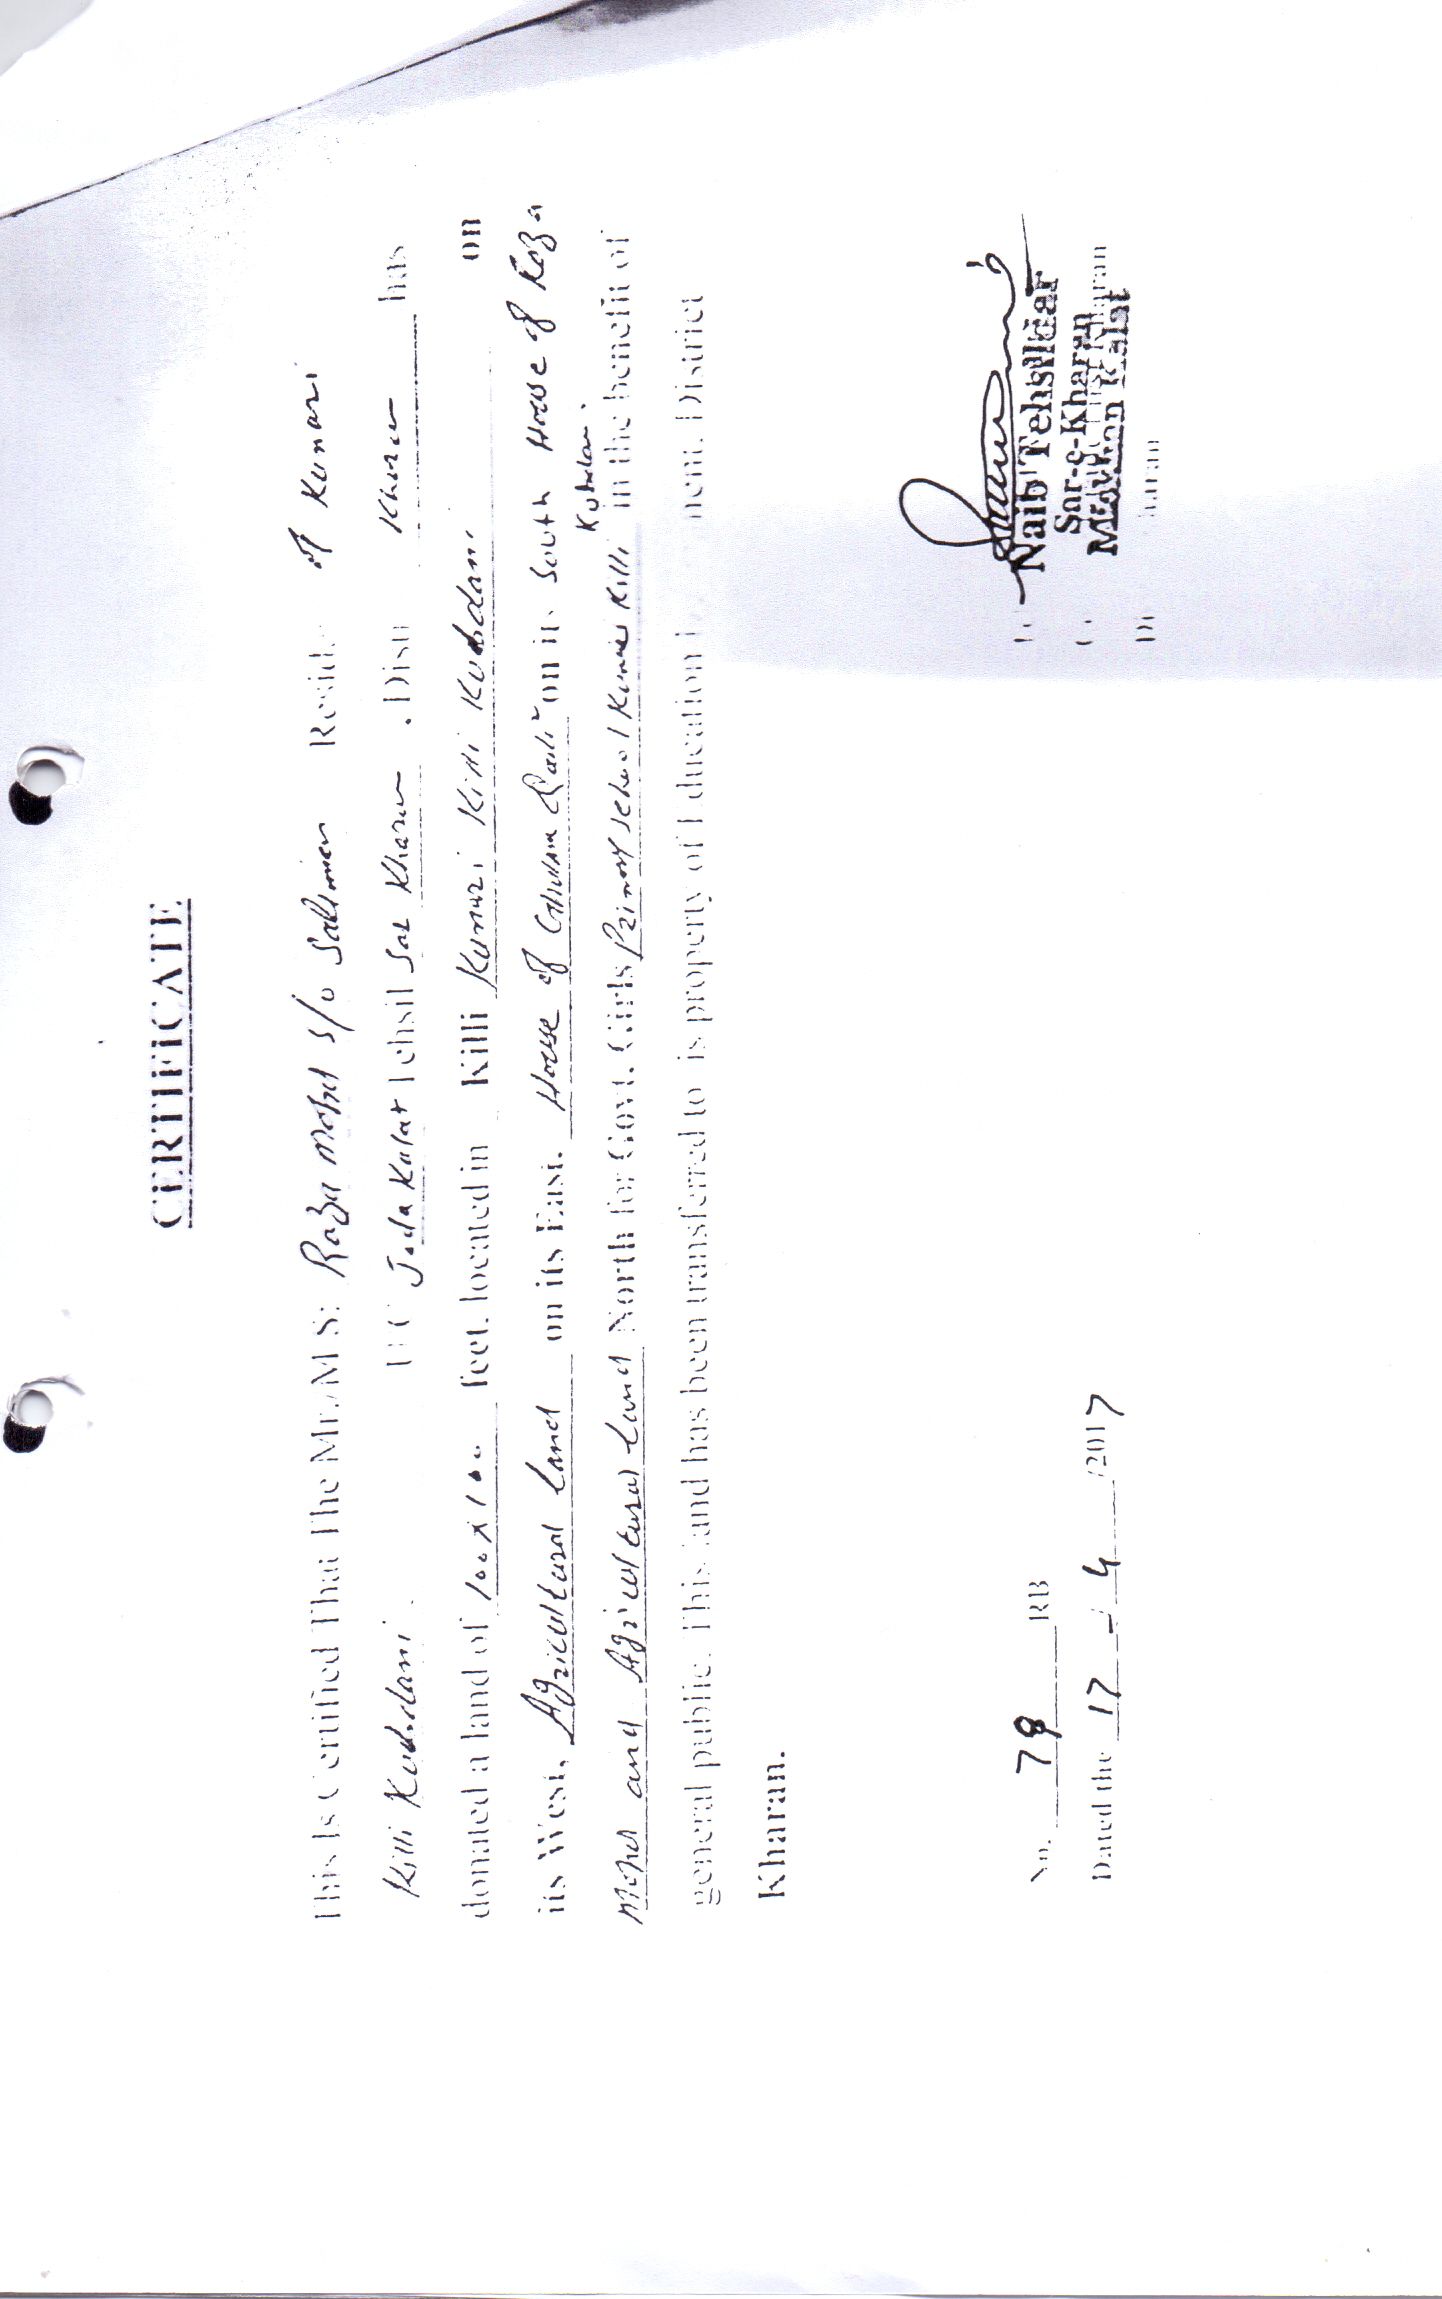 CERTIFICATE
This Is Certified That The Mr./M S: Raza Mohd s/o Salimen Reside of Kunari
Killi Kubdani. U C Joda Kalat Tehsil Sar Kharan . Dist Kharan has
donated a land of 100 x 100 feet. located in Killi Kunari Killi Kubdani on
its West. Agricultural Land on its East. House of Ghulam Qadir on it. South House of Raza
Mohd and Agricultural Land North for Govt. Girls Primary School Kunari Killi Kubdani. in the benefit of
general public. This land has been transferred to is property of Education ment. District
Kharan.
Naib Tehsildar
Sar-e-Kharan
Kalat
No. 79 RB
Dated the 17 - 4 /2017